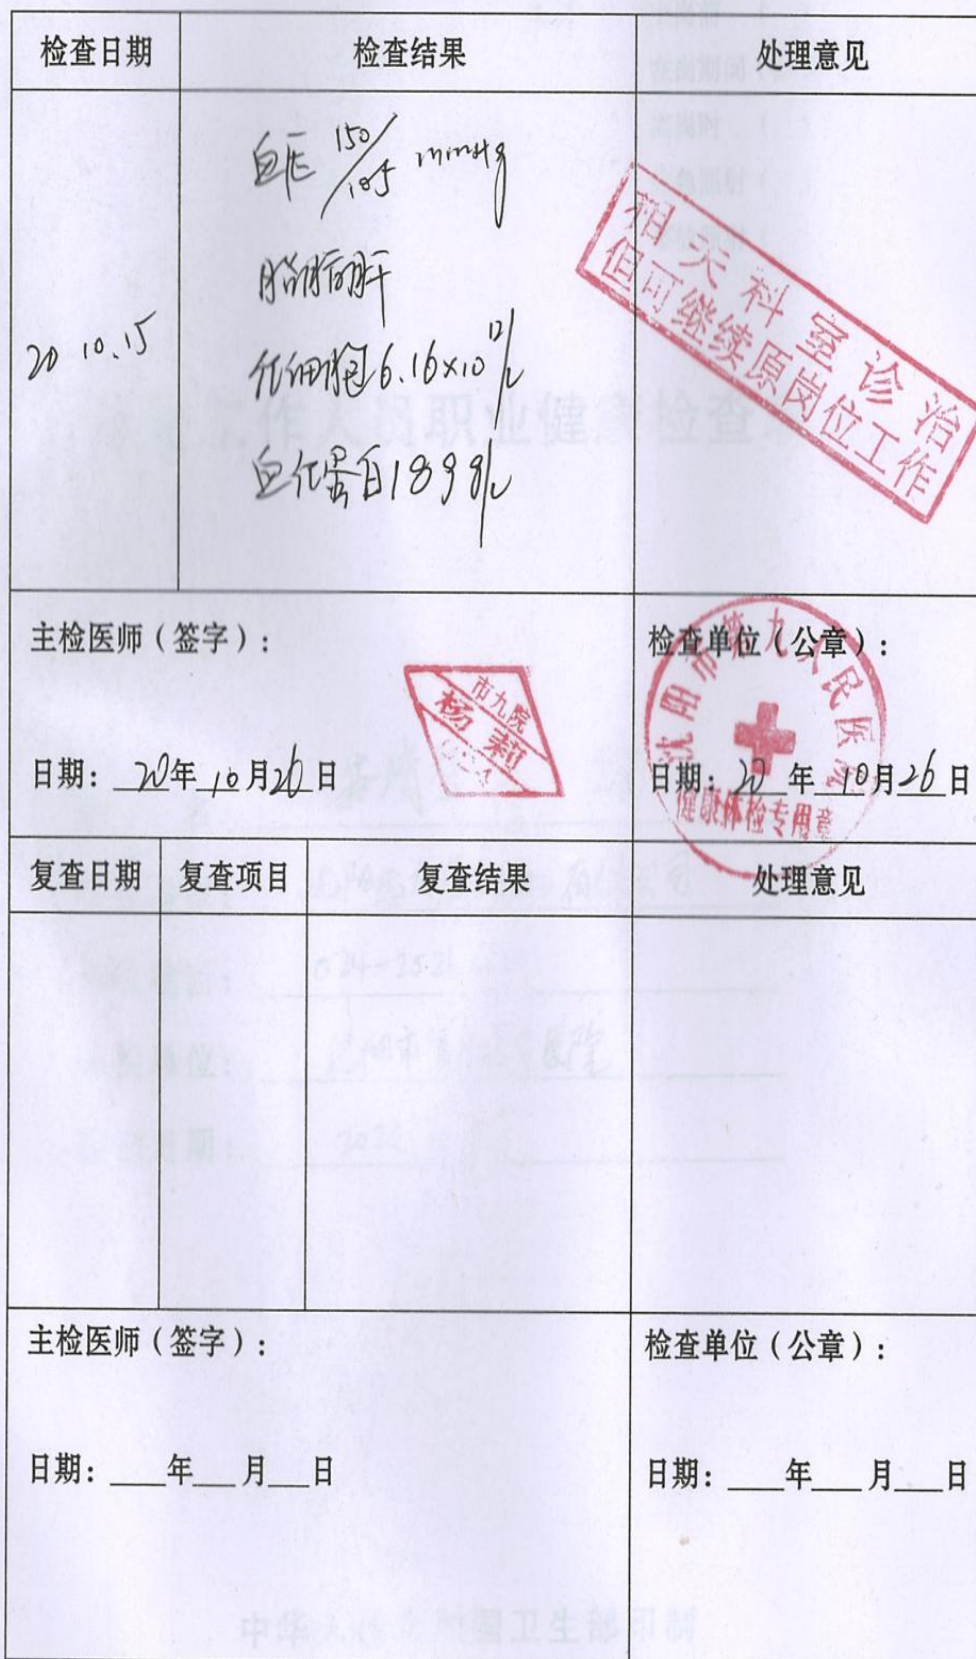 检查日期 检查结果 处理意见
20 10.15
血压 150/105 mmHg
脂肪肝
红细胞 6.16×10¹²/L
血红蛋白 189g/L
相关科室诊治
但可继续原岗位工作
主检医师（签字）：
市九院
杨莉
日期：20年10月26日
检查单位（公章）：
沈阳市第九人民医院
健康体检专用章
日期：20年10月26日
复查日期 复查项目 复查结果 处理意见
主检医师（签字）：
日期：___年___月___日
检查单位（公章）：
日期：___年___月___日